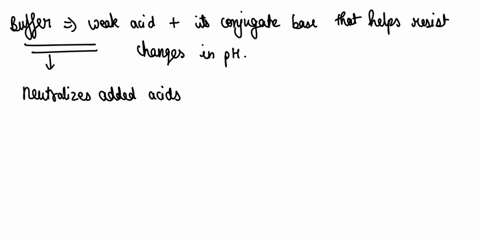 Buffer ⇒ weak acid + its conjugate base that helps resist
changes in pH.
↓
Neutralizes added acids